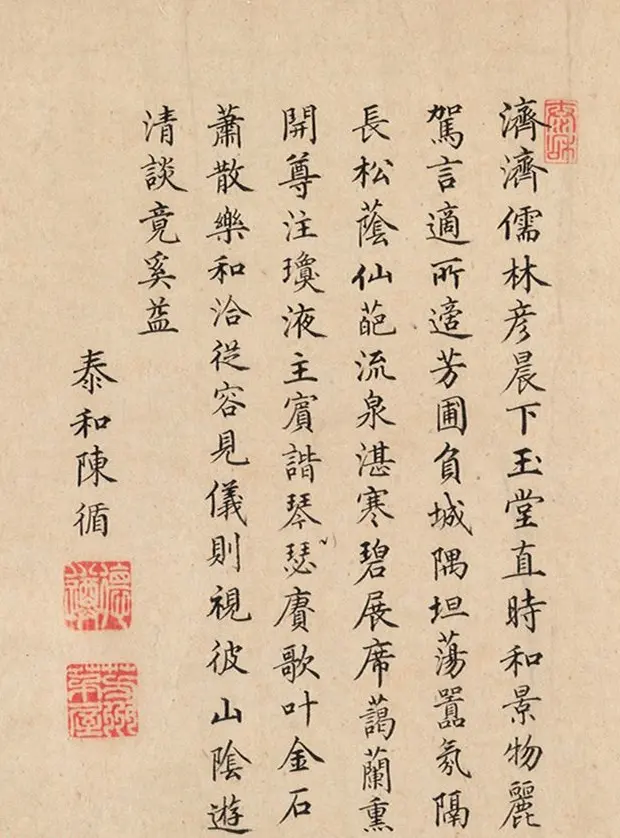 濟濟儒林彦晨下玉堂直時和景物麗
駕言適所適芳圃負城隅坦蕩囂氛隔
長松蔭仙葩流泉湛寒碧展席藹蘭熏
開尊注瓊液主賓諧琴瑟賡歌叶金石
蕭散樂和洽從容見儀則視彼山陰遊
清談竟奚益
泰和陳循